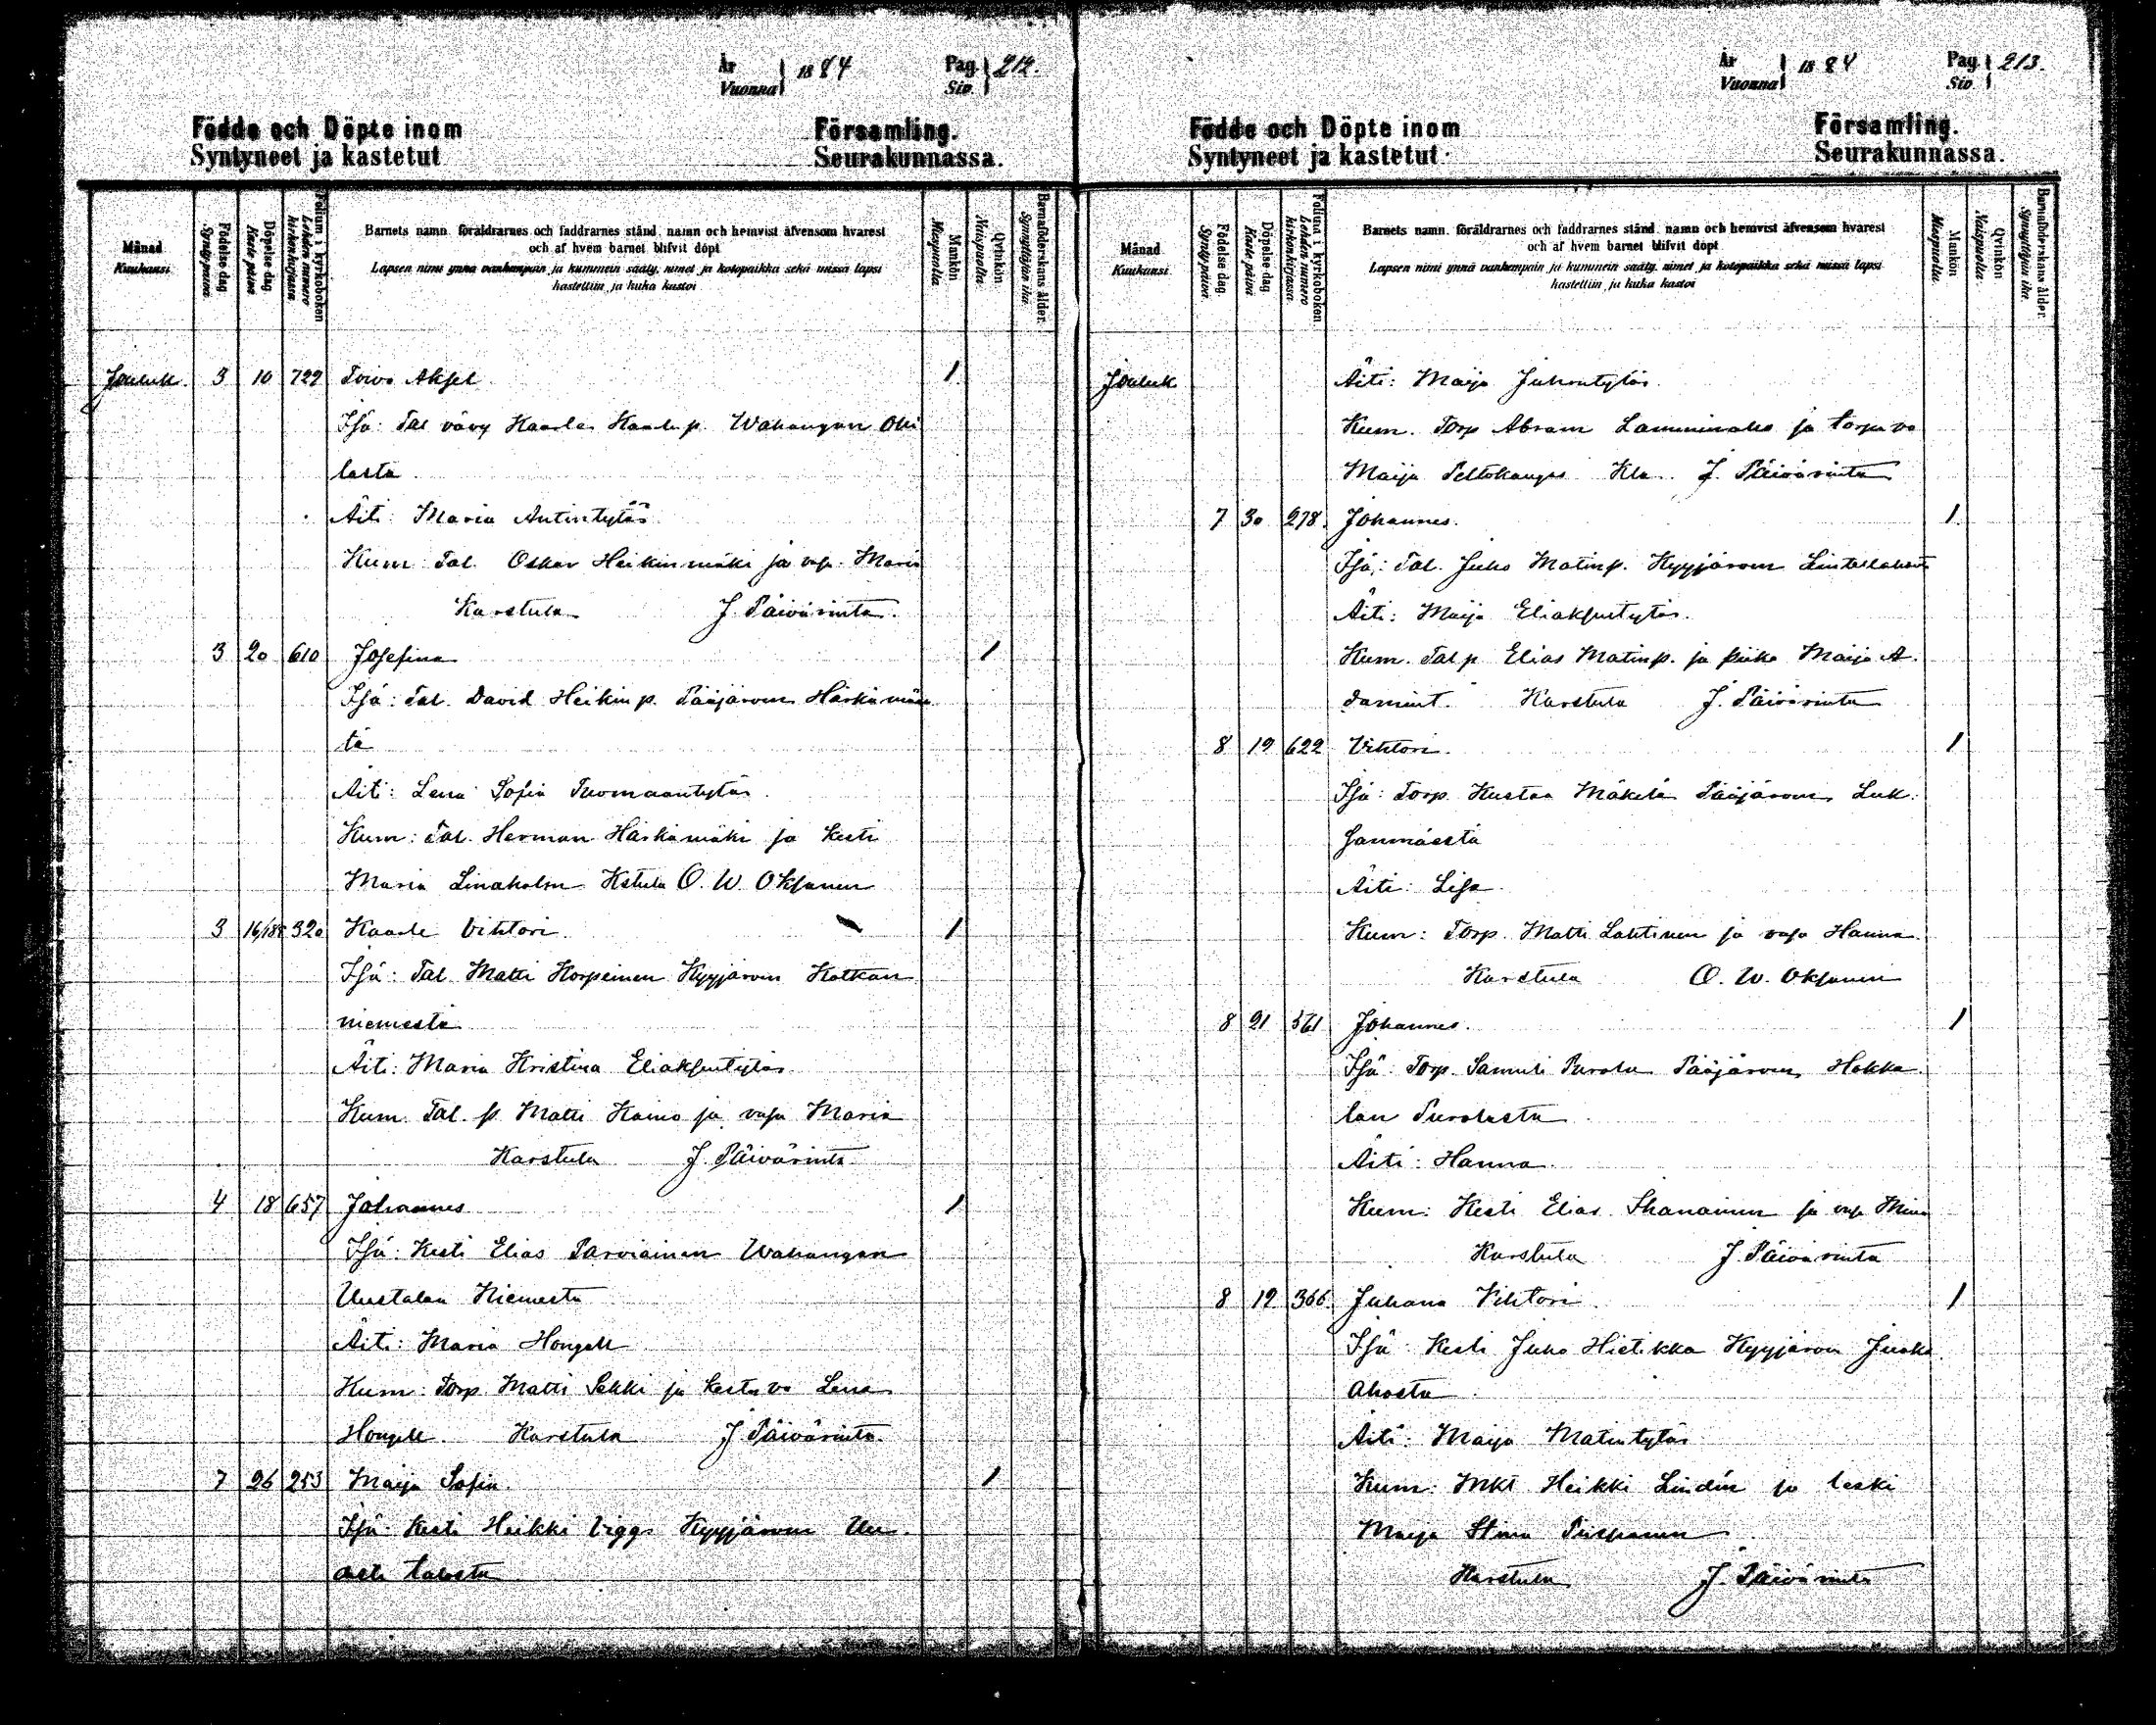 År Vuonna 1884 Pag. Siv. 212.
Födde och Döpte inom Församling.
Syntyneet ja kastetut Seurakunnassa.
Månad Kuukausi
Födelse dag Synty päivä
Döpelse dag Kaste päivä
Folium i kyrkoboken Lehden numero kirkonkirjassa
Barnets namn, föräldrarnes och faddrarnes stånd, namn och hemvist äfvensom hvarest
och af hvem barnet blifvit döpt
Lapsen nimi ynnä vanhempain ja kummein sääty, nimet ja kotopaikka sekä missä lapsi
kastettiin ja kuka kastoi
Mankön Miespuolia
Qvinkön Naispuolia
Barnaföderskans ålder. Synnyttäjän ikä.
Jouluk. 3 10 722 Toivo Aksel 1
Isä: Tal vävy Kaarle Kaarlep. Wahangan Oki
lasta
Äiti: Maria Antintytär
Kum: Tal. Oskar Heikinmäki ja vaj. Maria
Karstula J. Päivärinta.
3 20 610 Josefina 1
Isä: Tal. David Heikinp. Pääjärven Härkämäes
tä
Äiti: Lena Sofia Tuomaantytär
Kum: Tal. Herman Härkämäki ja Kesti
Maria Linaholm Kstula O. W. Oksanen
3 16/188 320 Kaarle Vihtori 1
Isä: Tal Matti Korpeinen Kyyjärven Kotkan
niemestä
Äiti: Maria Kristina Eliaksentytär
Kum Tal. p. Matti Kaino ja vaja Maria
Karstula J. Päivärinta
4 18 657 Johannes 1
Isä: Kesti Elias Parviainen Wahangan
Uustalan Niemestä
Äiti: Maria Hongell
Kum: Torp. Matti Sekki ja Kest. vo Lena
Hongell. Karstula J. Päivärinta.
7 26 253 Maija Sofia. 1
Isä: Kesti Heikki Viggo Kyyjärven Uu
delta talosta
År Vuonna 1884 Pag. Siv. 213.
Födde och Döpte inom Församling.
Syntyneet ja kastetut Seurakunnassa.
Månad Kuukausi
Födelse dag. Synty päivä.
Döpelse dag Kaste päivä
Folium i kyrkoboken. Lehden numero kirkonkirjassa.
Barnets namn, föräldrarnes och faddrarnes stånd, namn och hemvist äfvensom hvarest
och af hvem barnet blifvit döpt
Lapsen nimi ynnä vanhempain ja kummein sääty, nimet ja kotopaikka sekä missä lapsi
kastettiin ja kuka kastoi
Mankön Miespuolia.
Qvinkön Naispuolia.
Barnaföderskans ålder. Synnyttäjän ikä.
Jouluk Äiti: Maija Juhontytär.
Kum. Torp Abram Lamminaho ja torpa vo
Maija Peltokangas Kla. J. Päivärinta
7 30 278. Johannes. 1
Isä: Tal. Juho Matinp. Kyyjärven
Äiti: Maija Eliaksentytär.
Kum. Tal p Elias Matinp. ja piika Maija A.
damint. Karstula J. Päivärinta
8 19 622 Vihtori. 1
Isä: Torp. Kustaa Mäkelä Pääjärven Luk
Äiti: Lisa.
Kum: Torp. Matti Lahtinen ja vaja Hanna.
Karstula O. W. Oksanen
8 21 361 Johannes. 1
Isä: Torp. Samuli Purola Pääjärven Hokka
lan Purolasta
Äiti: Hanna.
Kum: Kesti Elias Ikanainen ja vaj. Mina
Karstula J. Päivärinta
8 19 366. Juhana Vihtori. 1
Isä: Kesti Juho Hietikka Kyyjärven
ahosta
Äiti: Maija Matintytär
Kum: Mkt Heikki Lindén ja leski
Maija Stina Piispanen
Karstula J. Päivärinta